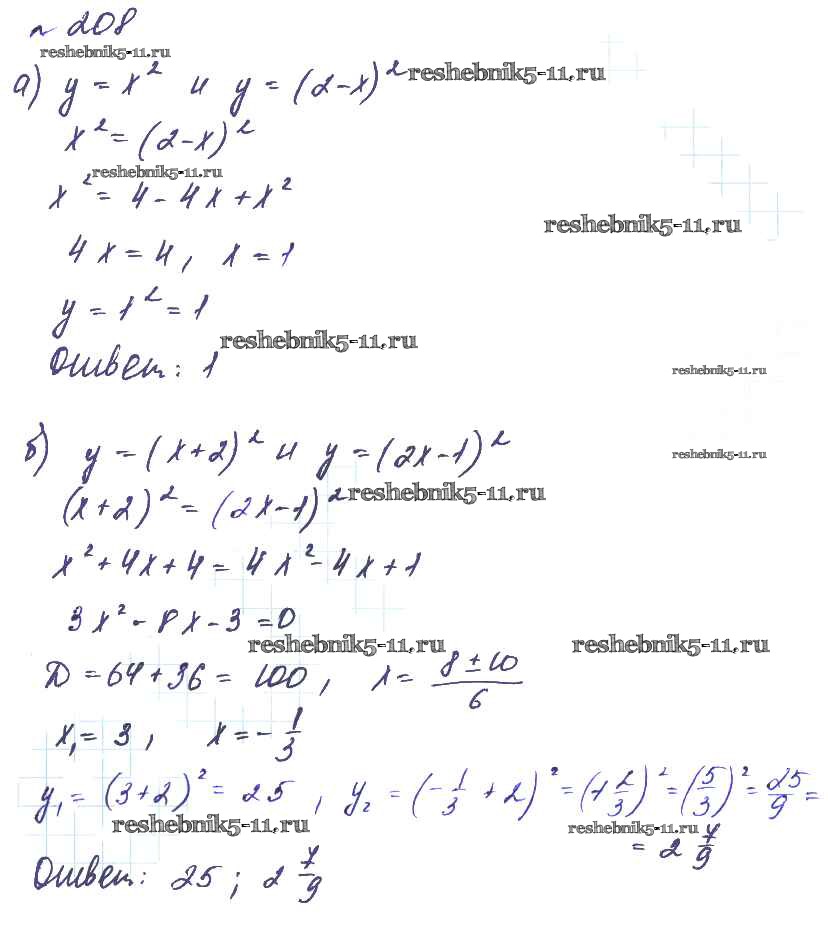 № 208
reshebnik5-11.ru
а) y = x² и y = (2-x)² reshebnik5-11.ru
x² = (2-x)²
reshebnik5-11.ru
x² = 4 - 4x + x²
reshebnik5-11.ru
4x = 4, x = 1
y = 1² = 1
reshebnik5-11.ru
Ответ: 1
reshebnik5-11.ru
б) y = (x+2)² и y = (2x-1)²
reshebnik5-11.ru
(x+2)² = (2x-1)² reshebnik5-11.ru
x² + 4x + 4 = 4x² - 4x + 1
3x² - 8x - 3 = 0
reshebnik5-11.ru reshebnik5-11.ru
D = 64 + 36 = 100, x = (8 ± 10)/6
x₁ = 3, x = -1/3
y₁ = (3+2)² = 25, y₂ = (-1/3 + 2)² = (1 2/3)² = (5/3)² = 25/9 =
reshebnik5-11.ru reshebnik5-11.ru
= 2 7/9
Ответ: 25; 2 7/9